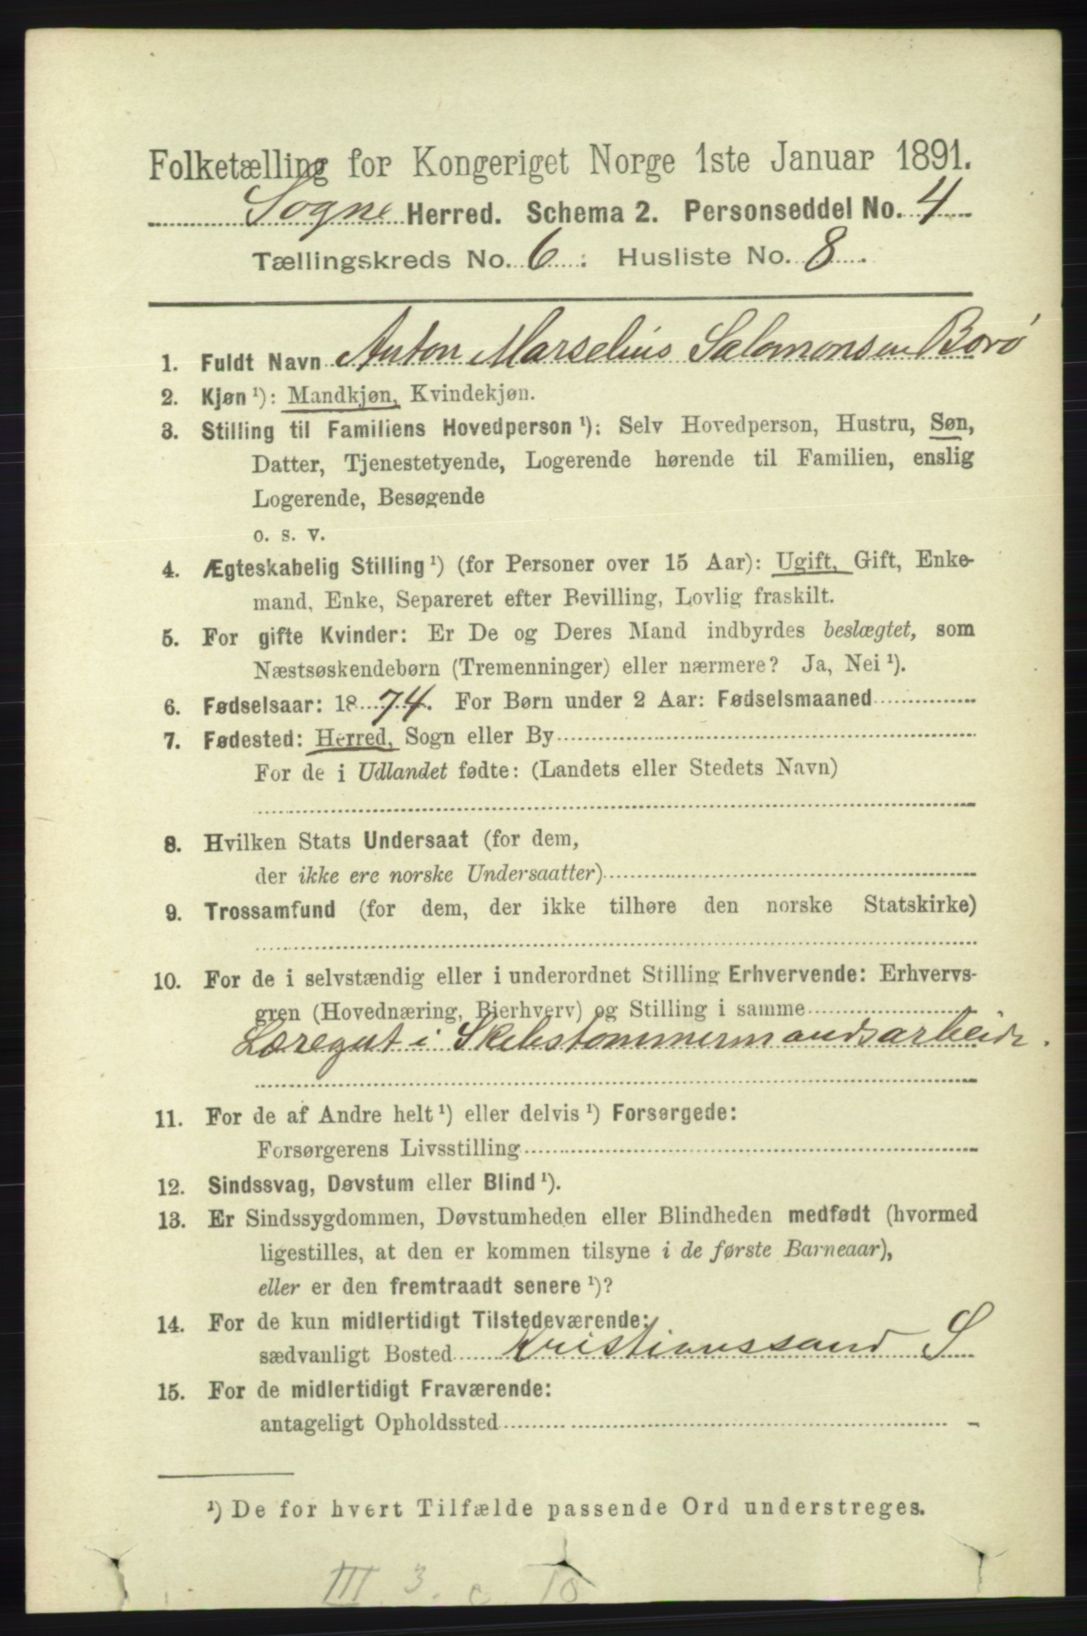 Folketælling for Kongeriget Norge 1ste Januar 1891.
Sogne Herred. Schema 2. Personseddel No. 4
Tællingskreds No. 6 : Husliste No. 8.
1. Fuldt Navn Anton Marselius Salomonsen Borö
2. Kjøn ¹): Mandkjøn, Kvindekjøn.
3. Stilling til Familiens Hovedperson ¹): Selv Hovedperson, Hustru, Søn,
Datter, Tjenestetyende, Logerende hørende til Familien, enslig
Logerende, Besøgende
o. s. v.
4. Ægteskabelig Stilling ¹) (for Personer over 15 Aar): Ugift, Gift, Enke-
mand, Enke, Separeret efter Bevilling, Lovlig fraskilt.
5. For gifte Kvinder: Er De og Deres Mand indbyrdes beslægtet, som
Næstsøskendebørn (Tremenninger) eller nærmere? Ja, Nei ¹).
6. Fødselsaar: 1874. For Børn under 2 Aar: Fødselsmaaned
7. Fødested: Herred, Sogn eller By
For de i Udlandet fødte: (Landets eller Stedets Navn)
8. Hvilken Stats Undersaat (for dem,
der ikke ere norske Undersaatter)
9. Trossamfund (for dem, der ikke tilhøre den norske Statskirke)
10. For de i selvstændig eller i underordnet Stilling Erhvervende: Erhvervs-
gren (Hovednæring, Bierhverv) og Stilling i samme
Læregut i Skibstommermandsarbeide.
11. For de af Andre helt ¹) eller delvis ¹) Forsørgede:
Forsørgerens Livsstilling
12. Sindssvag, Døvstum eller Blind ¹).
13. Er Sindssygdommen, Døvstumheden eller Blindheden medfødt (hvormed
ligestilles, at den er kommen tilsyne i de første Barneaar),
eller er den fremtraadt senere ¹)?
14. For de kun midlertidigt Tilstedeværende:
sædvanligt Bosted Kristianssand S
15. For de midlertidigt Fraværende:
antageligt Opholdssted
¹) De for hvert Tilfælde passende Ord understreges.
III 3. c. 10